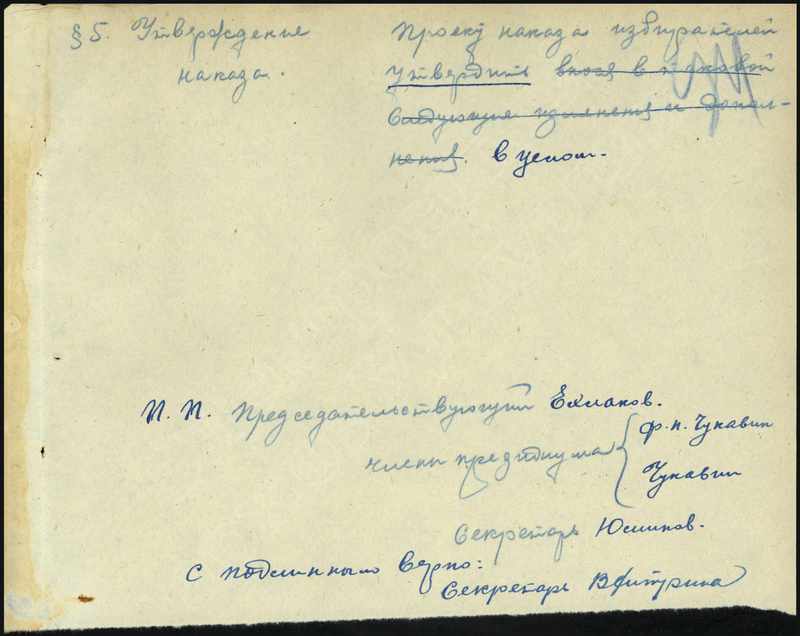 § 5. Утверждение
наказа.
Проект наказа избирателей
утвердить внося в таковой
следующия изменения и допол-
нения. в целом.
П. П. Председательствующий Ехлаков.
члены президиума { Ф. П. Чукавин
Чукавин
Секретарь Юшников.
С подлинным верно:
Секретарь